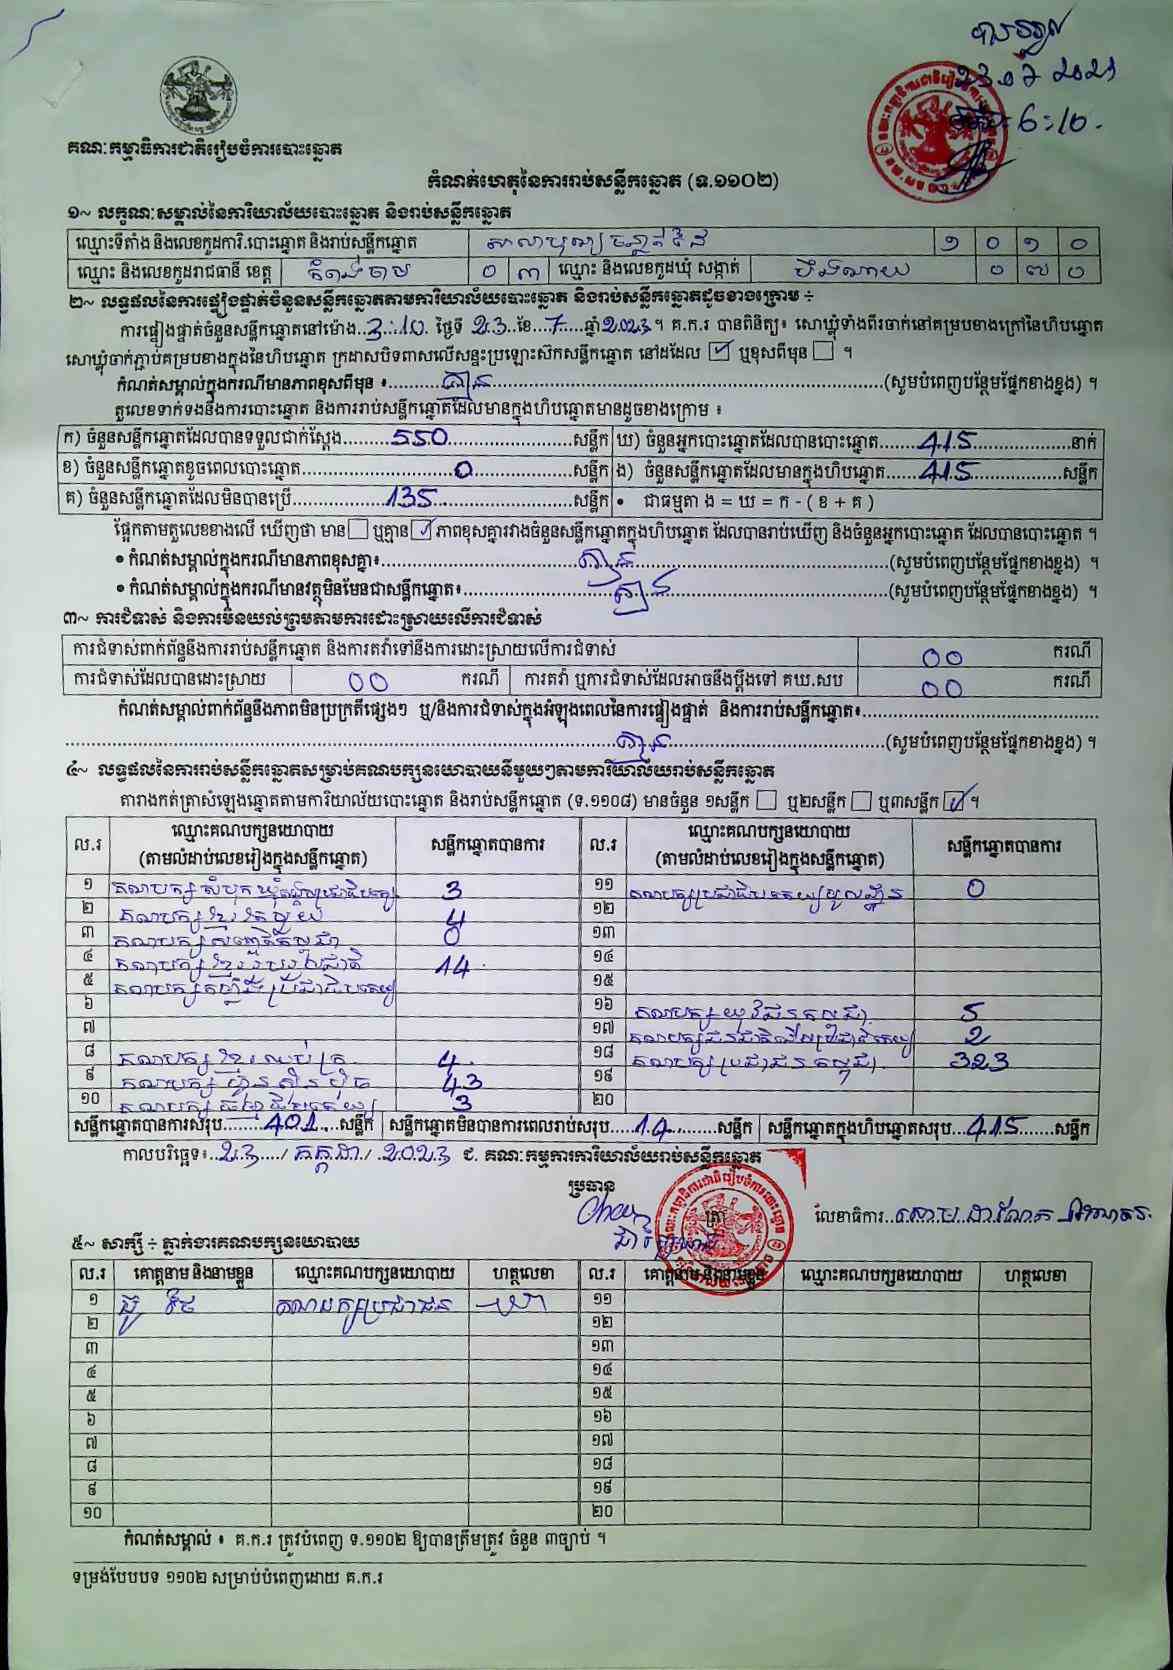 គណៈកម្មាធិការជាតិរៀបចំការបោះឆ្នោត
6:10
កំណត់ហេតុនៃការរាប់សន្លឹកឆ្នោត (ទ.១១០២)
១~ លក្ខណៈសម្គាល់នៃការិយាល័យបោះឆ្នោត និងរាប់សន្លឹកឆ្នោត
ឈ្មោះទីតាំង និងលេខកូដការិ.បោះឆ្នោត និងរាប់សន្លឹកឆ្នោត ១ ០ ១ ០
ឈ្មោះ និងលេខកូដរាជធានី ខេត្ត កំពង់ចាម ០ ៣ ឈ្មោះ និងលេខកូដឃុំ សង្កាត់ បឹងណាយ ០ ៧ ០
២~ លទ្ធផលនៃការផ្ទៀងផ្ទាត់ចំនួនសន្លឹកឆ្នោតតាមការិយាល័យបោះឆ្នោត និងរាប់សន្លឹកឆ្នោតដូចខាងក្រោម ÷
ការផ្ទៀងផ្ទាត់ចំនួនសន្លឹកឆ្នោតនៅម៉ោង 3:10 ថ្ងៃទី 23 ខែ 7 ឆ្នាំ 2023 ។ គ.ក.រ បានពិនិត្យ៖ សោឃ្លុំទាំងពីរចាក់នៅគម្របខាងក្រៅនៃហិបឆ្នោត
សោឃ្លុំចាក់ភ្ជាប់គម្របខាងក្នុងនៃហិបឆ្នោត ក្រដាសបិទពាសលើសន្ទះប្រឡោះស៊កសន្លឹកឆ្នោត នៅដដែល ✓ ឬខុសពីមុន ។
កំណត់សម្គាល់ក្នុងករណីមានភាពខុសពីមុន ៖ គ្មាន (សូមបំពេញបន្ថែមផ្នែកខាងខ្នង) ។
តួលេខទាក់ទងនឹងការបោះឆ្នោត និងការរាប់សន្លឹកឆ្នោតដែលមានក្នុងហិបឆ្នោតមានដូចខាងក្រោម ៖
ក) ចំនួនសន្លឹកឆ្នោតដែលបានទទួលជាក់ស្តែង 550 សន្លឹក ឃ) ចំនួនអ្នកបោះឆ្នោតដែលបានបោះឆ្នោត 415 នាក់
ខ) ចំនួនសន្លឹកឆ្នោតខូចពេលបោះឆ្នោត 0 សន្លឹក ង) ចំនួនសន្លឹកឆ្នោតដែលមានក្នុងហិបឆ្នោត 415 សន្លឹក
គ) ចំនួនសន្លឹកឆ្នោតដែលមិនបានប្រើ 135 សន្លឹក • ជាធម្មតា ង = ឃ = ក - ( ខ + គ )
ផ្អែកតាមតួលេខខាងលើ ឃើញថា មាន ឬគ្មាន ✓ ភាពខុសគ្នារវាងចំនួនសន្លឹកឆ្នោតក្នុងហិបឆ្នោត ដែលបានរាប់ឃើញ និងចំនួនអ្នកបោះឆ្នោត ដែលបានបោះឆ្នោត ។
• កំណត់សម្គាល់ក្នុងករណីមានភាពខុសគ្នា៖ គ្មាន (សូមបំពេញបន្ថែមផ្នែកខាងខ្នង) ។
• កំណត់សម្គាល់ក្នុងករណីមានវត្ថុមិនមែនជាសន្លឹកឆ្នោត៖ គ្មាន (សូមបំពេញបន្ថែមផ្នែកខាងខ្នង) ។
៣~ ការជំទាស់ និងការមិនយល់ព្រមតាមការដោះស្រាយលើការជំទាស់
ការជំទាស់ពាក់ព័ន្ធនឹងការរាប់សន្លឹកឆ្នោត និងការតវ៉ាទៅនឹងការដោះស្រាយលើការជំទាស់ 00 ករណី
ការជំទាស់ដែលបានដោះស្រាយ 00 ករណី ការតវ៉ា ឬការជំទាស់ដែលអាចនឹងប្តឹងទៅ គឃ.សប 00 ករណី
កំណត់សម្គាល់ពាក់ព័ន្ធនឹងភាពមិនប្រក្រតីផ្សេងៗ ឬ/និងការជំទាស់ក្នុងអំឡុងពេលនៃការផ្ទៀងផ្ទាត់ និងការរាប់សន្លឹកឆ្នោត៖
គ្មាន (សូមបំពេញបន្ថែមផ្នែកខាងខ្នង) ។
៤~ លទ្ធផលនៃការរាប់សន្លឹកឆ្នោតសម្រាប់គណបក្សនយោបាយនីមួយៗតាមការិយាល័យរាប់សន្លឹកឆ្នោត
តារាងកត់ត្រាសំឡេងឆ្នោតតាមការិយាល័យបោះឆ្នោត និងរាប់សន្លឹកឆ្នោត (ទ.១១០៨) មានចំនួន ១សន្លឹក ឬ២សន្លឹក ឬ៣សន្លឹក ✓ ។
ល.រ ឈ្មោះគណបក្សនយោបាយ (តាមលំដាប់លេខរៀងក្នុងសន្លឹកឆ្នោត) សន្លឹកឆ្នោតបានការ ល.រ ឈ្មោះគណបក្សនយោបាយ (តាមលំដាប់លេខរៀងក្នុងសន្លឹកឆ្នោត) សន្លឹកឆ្នោតបានការ
១ គណបក្សសំបុកឃ្មុំសង្គមប្រជាធិបតេយ្យ 3 ១១ គណបក្សប្រជាធិបតេយ្យមូលដ្ឋាន 0
២ គណបក្សខ្មែររួបរួម 4 ១២
៣ គណបក្ស 0 ១៣
៤ គណបក្សខ្មែររួបរួមជាតិ 14 ១៤
៥ គណបក្សកម្លាំងប្រជាធិបតេយ្យ ១៥
៦ ១៦ គណបក្សយុវជនកម្ពុជា 5
៧ ១៧ គណបក្សជនជាតិដើមប្រជាធិបតេយ្យ 2
៨ គណបក្សខ្មែរឈប់ក្រ 4 ១៨ គណបក្សប្រជាជនកម្ពុជា 323
៩ គណបក្សហ៊្វុនស៊ិនប៉ិច 43 ១៩
១០ គណបក្សធម្មាធិបតេយ្យ 3 ២០
សន្លឹកឆ្នោតបានការសរុប 401 សន្លឹក សន្លឹកឆ្នោតមិនបានការពេលរាប់សរុប 14 សន្លឹក សន្លឹកឆ្នោតក្នុងហិបឆ្នោតសរុប 415 សន្លឹក
កាលបរិច្ឆេទ៖ 23 / កក្កដា / 2023 ជ. គណៈកម្មការការិយាល័យរាប់សន្លឹកឆ្នោត
ប្រធាន
ត្រា លេខាធិការ
៥~ សាក្សី ÷ ភ្នាក់ងារគណបក្សនយោបាយ
ល.រ គោត្តនាម និងនាមខ្លួន ឈ្មោះគណបក្សនយោបាយ ហត្ថលេខា ល.រ គោត្តនាម និងនាមខ្លួន ឈ្មោះគណបក្សនយោបាយ ហត្ថលេខា
១ គណបក្សប្រជាជន ១១
២ ១២
៣ ១៣
៤ ១៤
៥ ១៥
៦ ១៦
៧ ១៧
៨ ១៨
៩ ១៩
១០ ២០
កំណត់សម្គាល់ ៖ គ.ក.រ ត្រូវបំពេញ ទ.១១០២ ឱ្យបានត្រឹមត្រូវ ចំនួន ៣ច្បាប់ ។
ទម្រង់បែបបទ ១១០២ សម្រាប់បំពេញដោយ គ.ក.រ